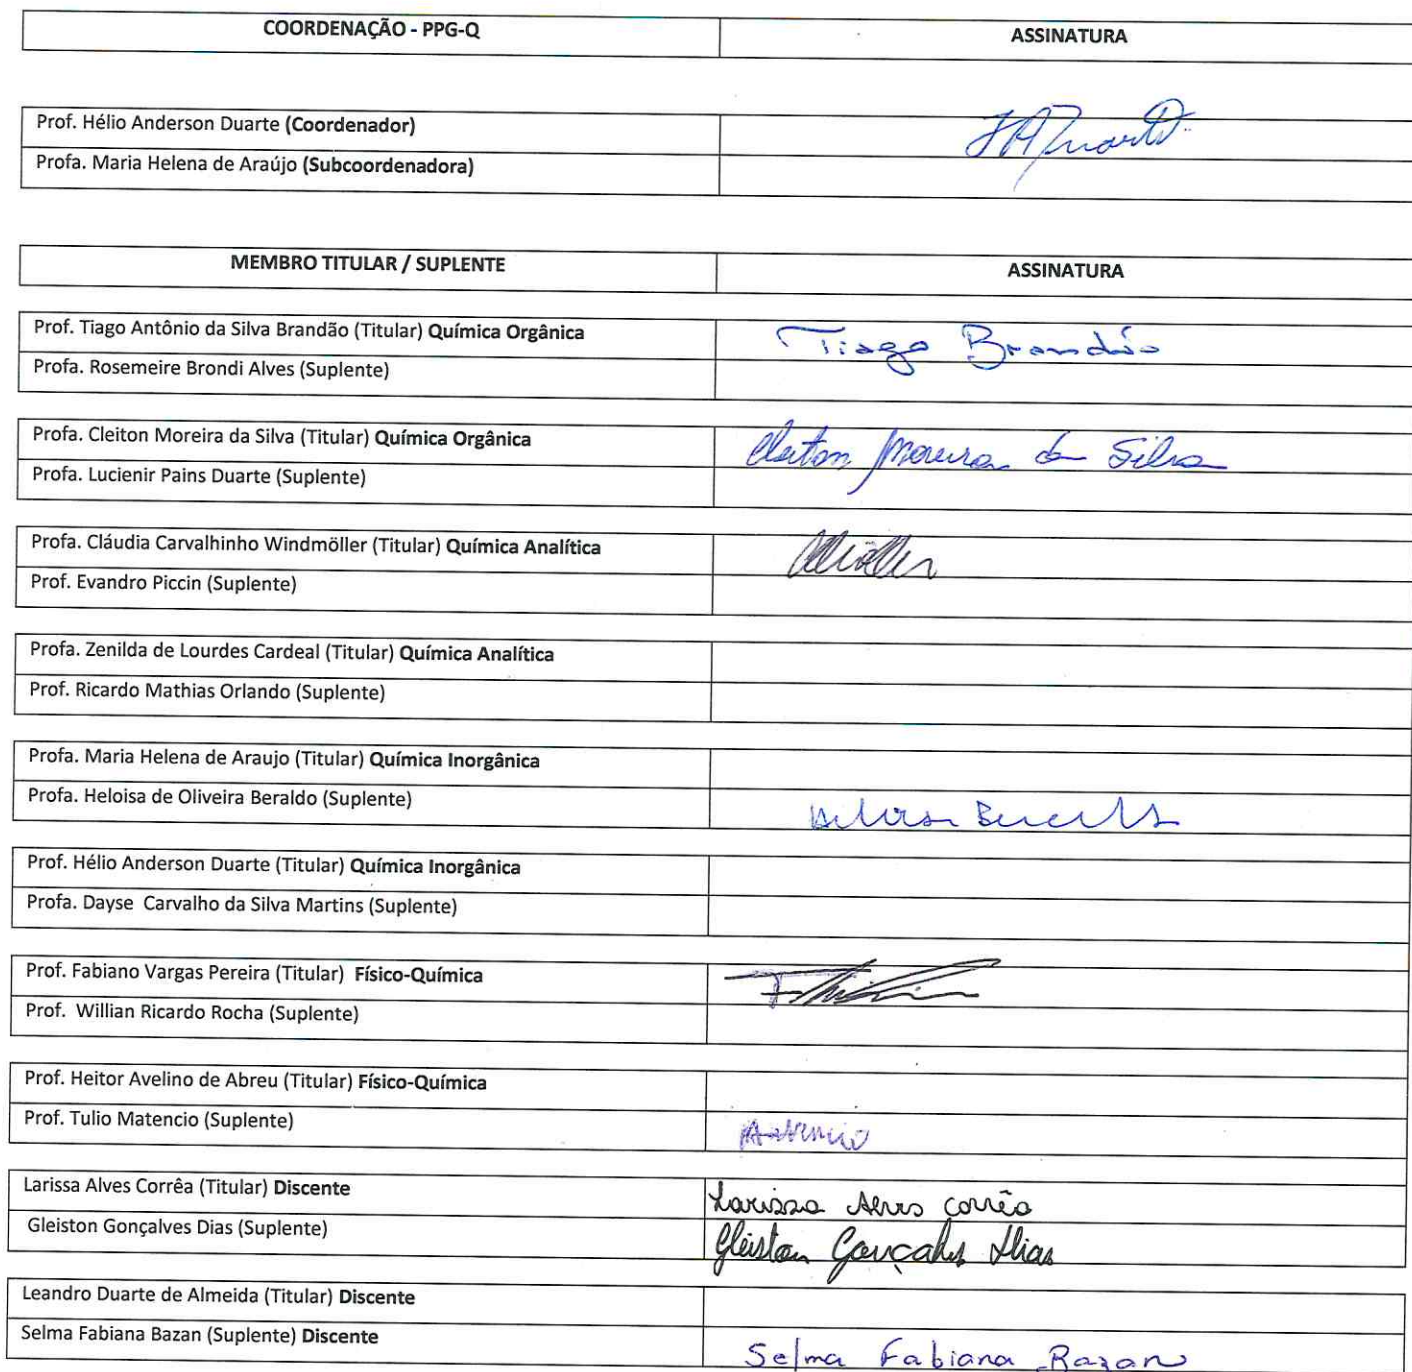 COORDENAÇÃO - PPG-Q ASSINATURA
Prof. Hélio Anderson Duarte (Coordenador) HADuarte
Profa. Maria Helena de Araújo (Subcoordenadora)
MEMBRO TITULAR / SUPLENTE ASSINATURA
Prof. Tiago Antônio da Silva Brandão (Titular) Química Orgânica Tiago Brandão
Profa. Rosemeire Brondi Alves (Suplente)
Profa. Cleiton Moreira da Silva (Titular) Química Orgânica Cleiton Moreira da Silva
Profa. Lucienir Pains Duarte (Suplente)
Profa. Cláudia Carvalhinho Windmöller (Titular) Química Analítica
Prof. Evandro Piccin (Suplente)
Profa. Zenilda de Lourdes Cardeal (Titular) Química Analítica
Prof. Ricardo Mathias Orlando (Suplente)
Profa. Maria Helena de Araujo (Titular) Química Inorgânica
Profa. Heloisa de Oliveira Beraldo (Suplente) Heloisa Beraldo
Prof. Hélio Anderson Duarte (Titular) Química Inorgânica
Profa. Dayse Carvalho da Silva Martins (Suplente)
Prof. Fabiano Vargas Pereira (Titular) Físico-Química
Prof. Willian Ricardo Rocha (Suplente)
Prof. Heitor Avelino de Abreu (Titular) Físico-Química
Prof. Tulio Matencio (Suplente) Matencio
Larissa Alves Corrêa (Titular) Discente Larissa Alves Corrêa
Gleiston Gonçalves Dias (Suplente) Gleiston Gonçalves Dias
Leandro Duarte de Almeida (Titular) Discente
Selma Fabiana Bazan (Suplente) Discente Selma Fabiana Bazan